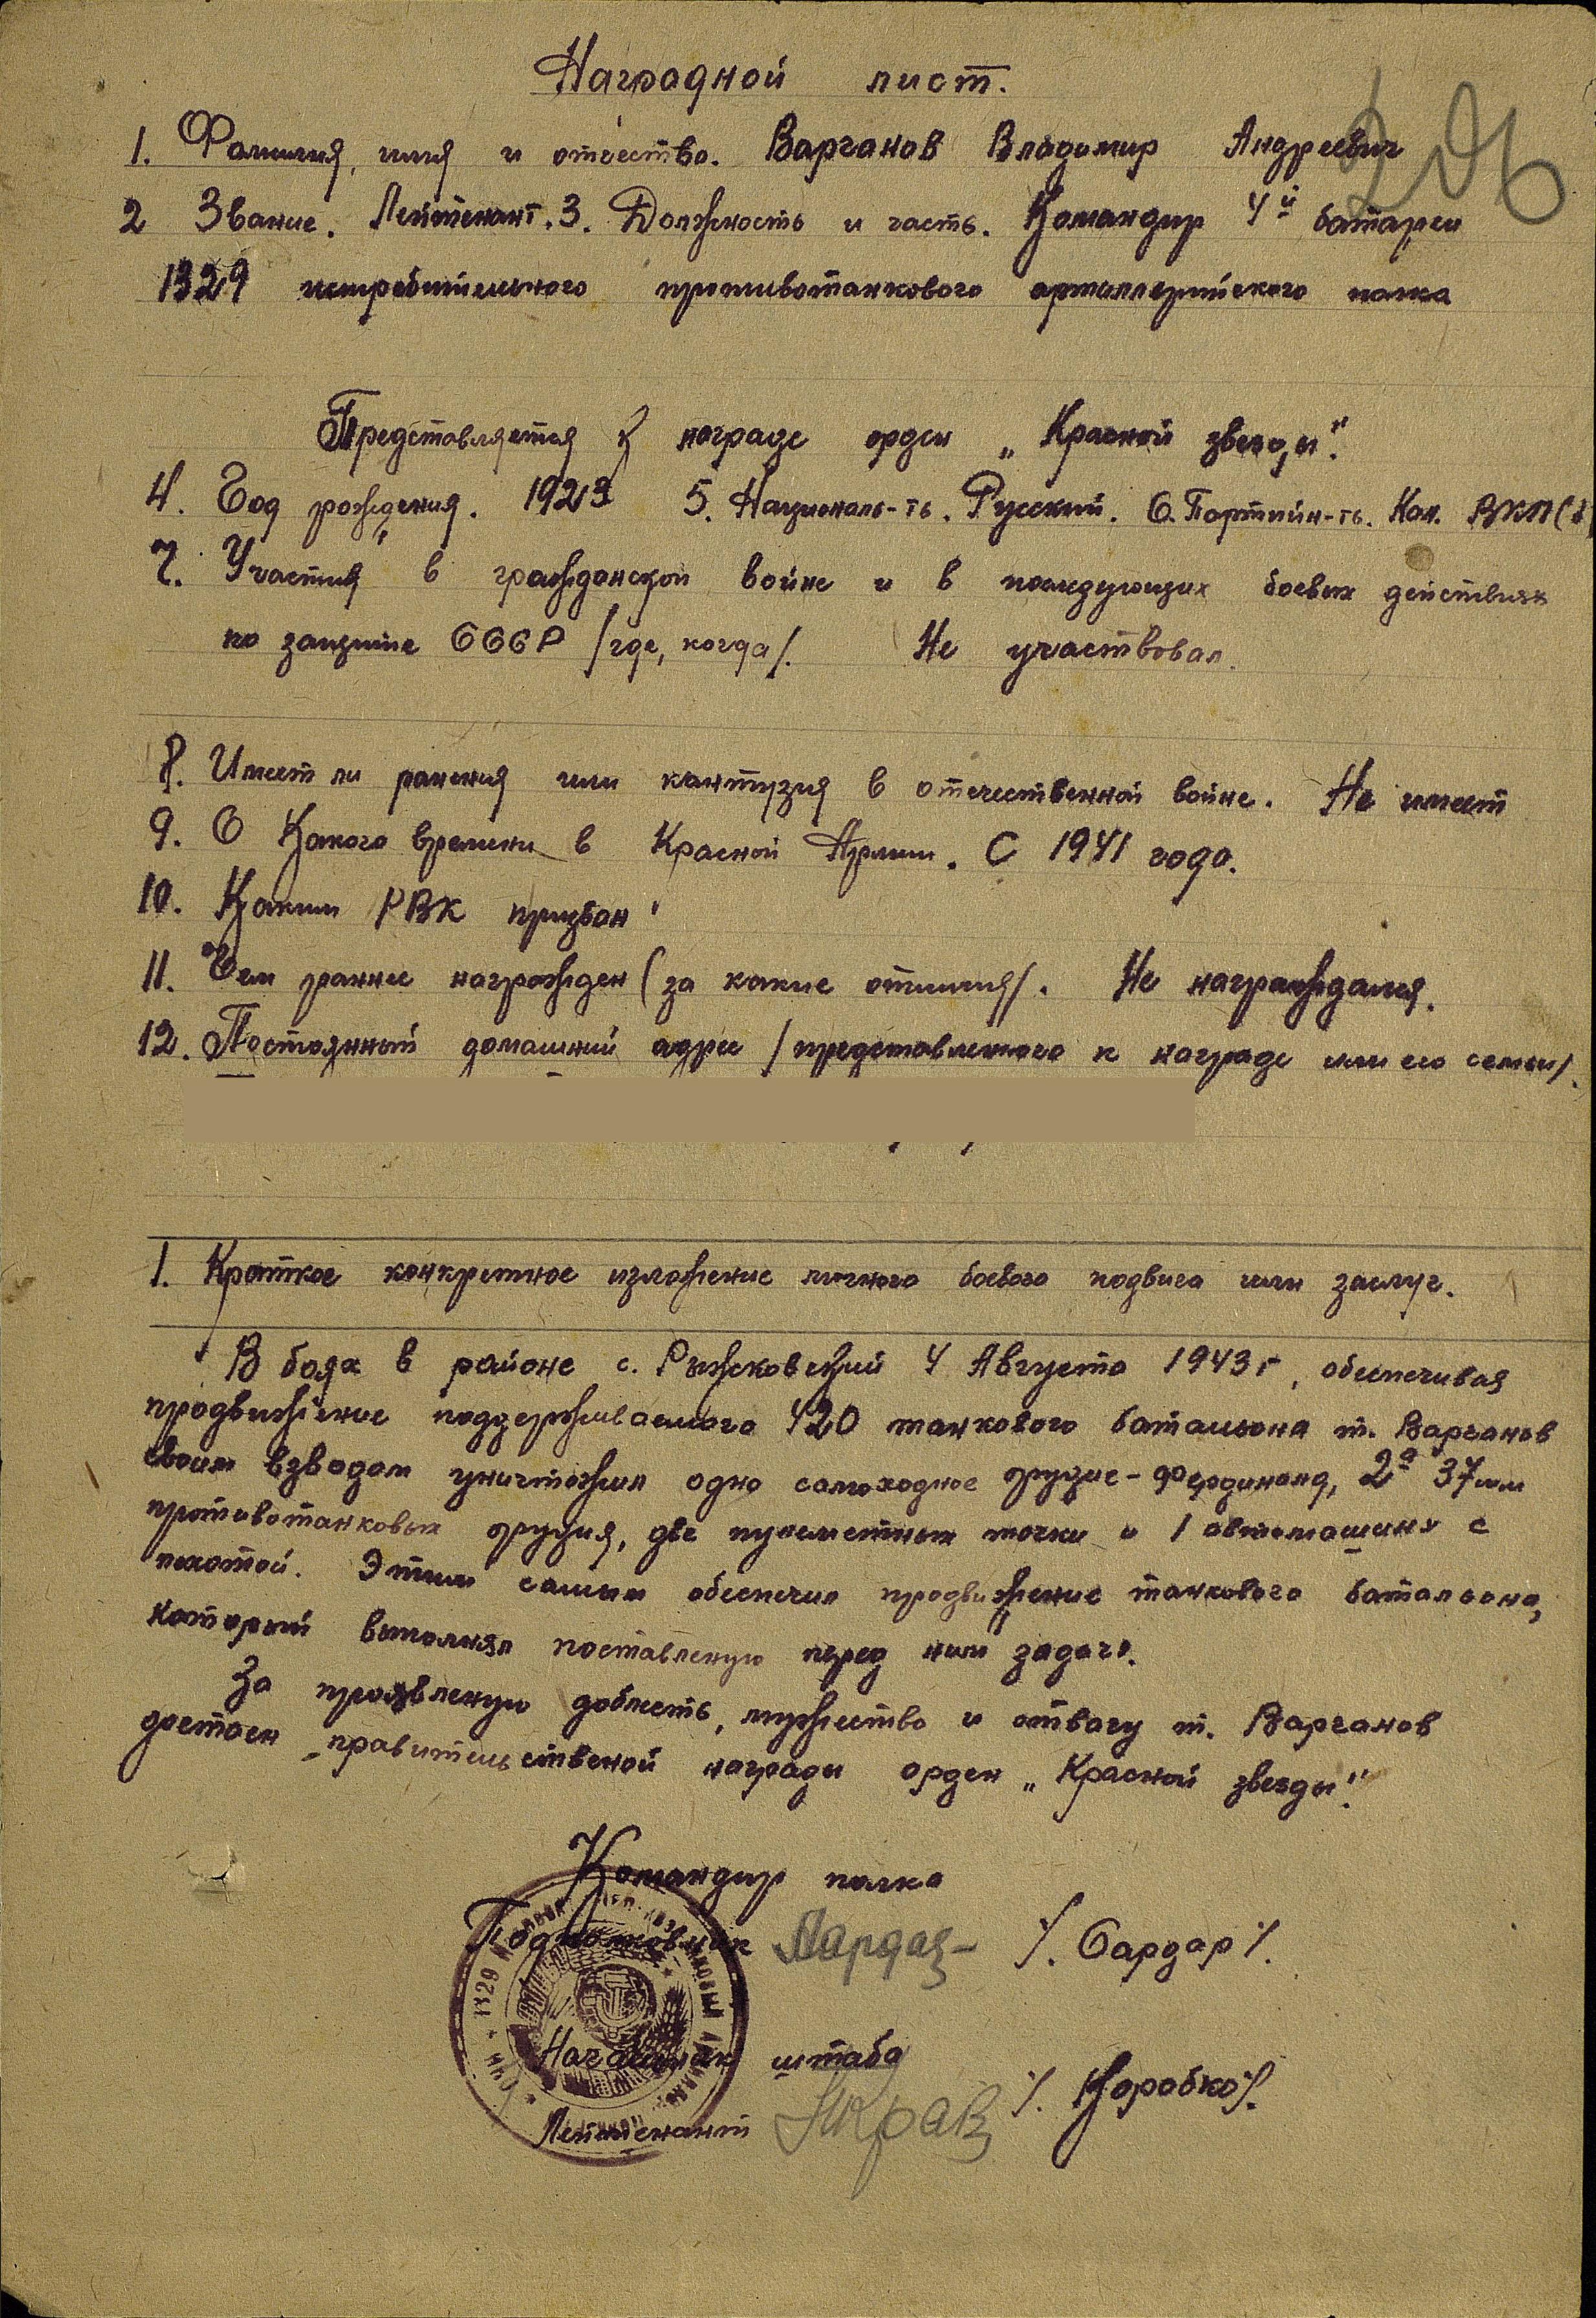 Наградной лист.
206
1. Фамилия, имя и отчество. Варганов Владимир Андреевич
2 Звание. Лейтенант. 3. Должность и часть. Командир 4й батареи
1329 истребительного противотанкового артиллерийского полка
Представляется к награде орден „Красной звезды".
4. Год рождения. 1923 5. Националь-ть. Русский. 6. Партийн-ть. Кан. ВКП(б
7. Участия в гражданской войне и в последующих боевых действиях
по защите СССР /где, когда/. Не участвовал.
8. Имеет ли ранения или контузия в отечественной войне. Не имеет
9. С Какого времени в Красной Армии. С 1941 года.
10. Каким РВК призван
11. Чем раннее награжден (за какие отличия/. Не награждался.
12. Постоянный домашний адрес /представленного к награде или его семьи/.
1. Краткое конкретное изложение личного боевого подвига или заслуг.
В боях в районе с. Рыжковский 4 Августа 1943г, обеспечивая
продвижение поддерживаемого 420 танкового батальона т. Варганов
своим взводом уничтожил одно самоходное орудие-Фердинанд, 2а 37мм
противотанковых орудия, две пулеметных точки и 1 автомашину с
пехотой. Этим самым обеспечил продвижение танкового батальона,
который выполнял поставленую перед ним задачу.
За проявленую доблесть, мужество и отвагу т. Варганов
достоен правительственой награды орден „Красной звезды".
Командир полка
Подполковник /. Сардар/.
Начальник штаба
Лейтенант /. Коробко/.
1329